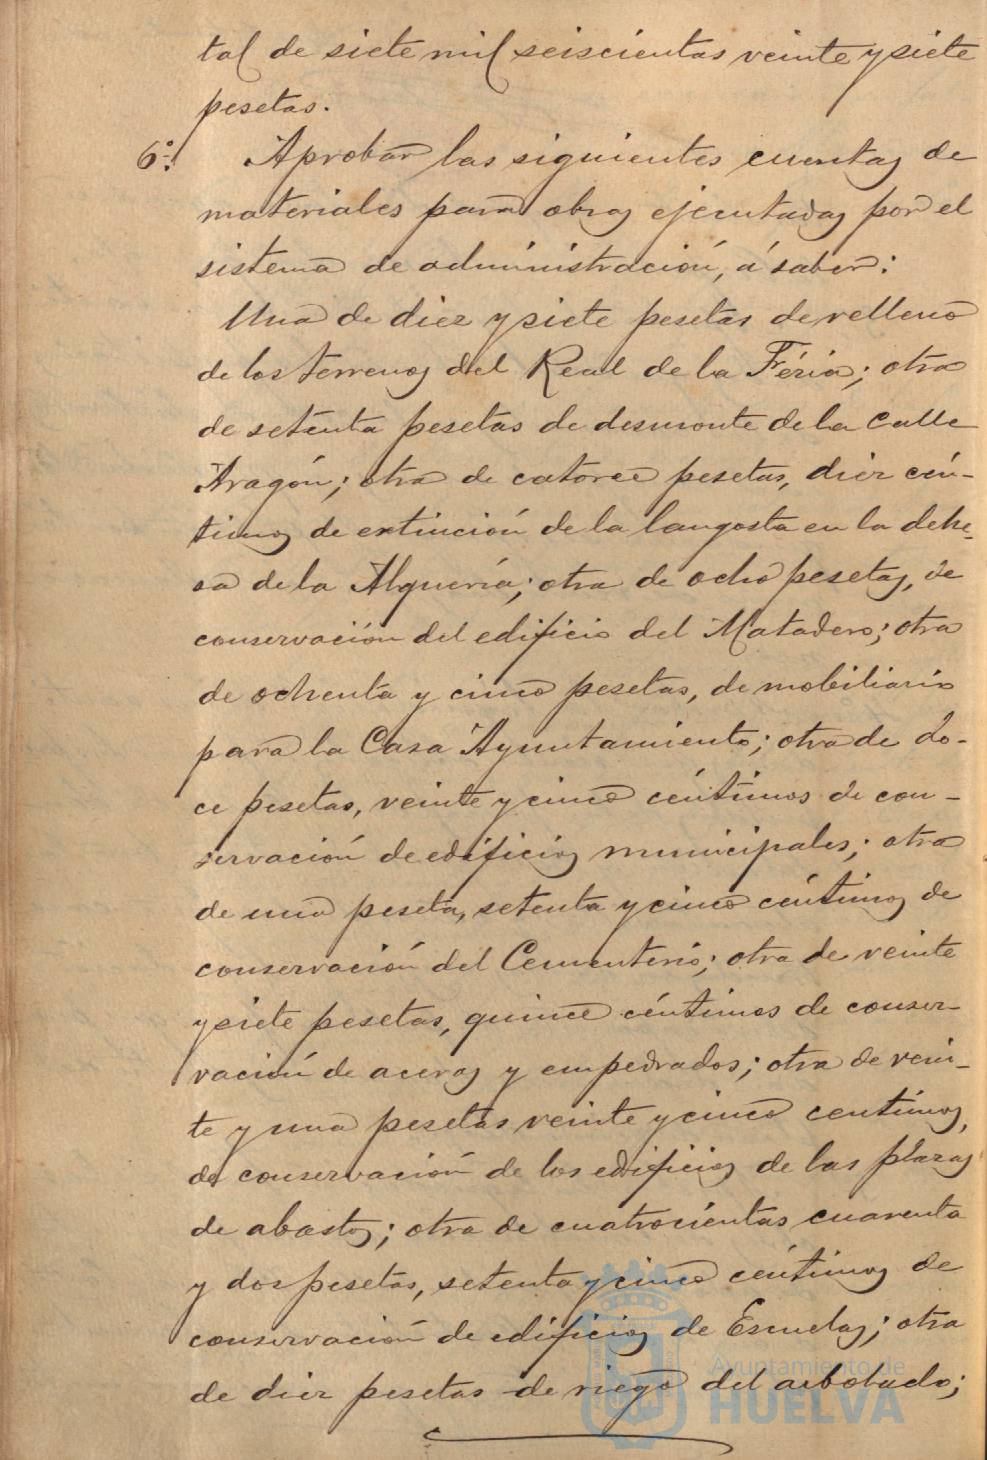 tal de siete mil seiscientas veinte y siete
pesetas.
6º. Aprobar las siguientes cuentas de
materiales para obras ejecutadas por el
sistema de administración, á saber:
Una de diez y siete pesetas de relleno
de los terrenos del Real de la Féria; otra
de setenta pesetas de desmonte de la calle
Aragón; otra de catorce pesetas, diez cén-
timos de extinción de la langosta en la dehe-
sa de la Alquería; otra de ocho pesetas, de
conservación del edificio del Matadero; otra
de ochenta y cinco pesetas, de mobiliario
para la Casa Ayuntamiento; otra de do-
ce pesetas, veinte y cinco céntimos de con-
servación de edificios municipales; otra
de una peseta, setenta y cinco céntimos de
conservación del Cementerio; otra de veinte
y siete pesetas, quince céntimos de conser-
vación de aceras y empedrados; otra de vein-
te y una pesetas veinte y cinco centimos,
de conservación de los edificios de las plazas
de abastos; otra de cuatrocientas cuarenta
y dos pesetas, setenta y cinco céntimos de
conservación de edificios de Escuelas; otra
de diez pesetas de riego del arbolado;
Ayuntamiento de
HUELVA